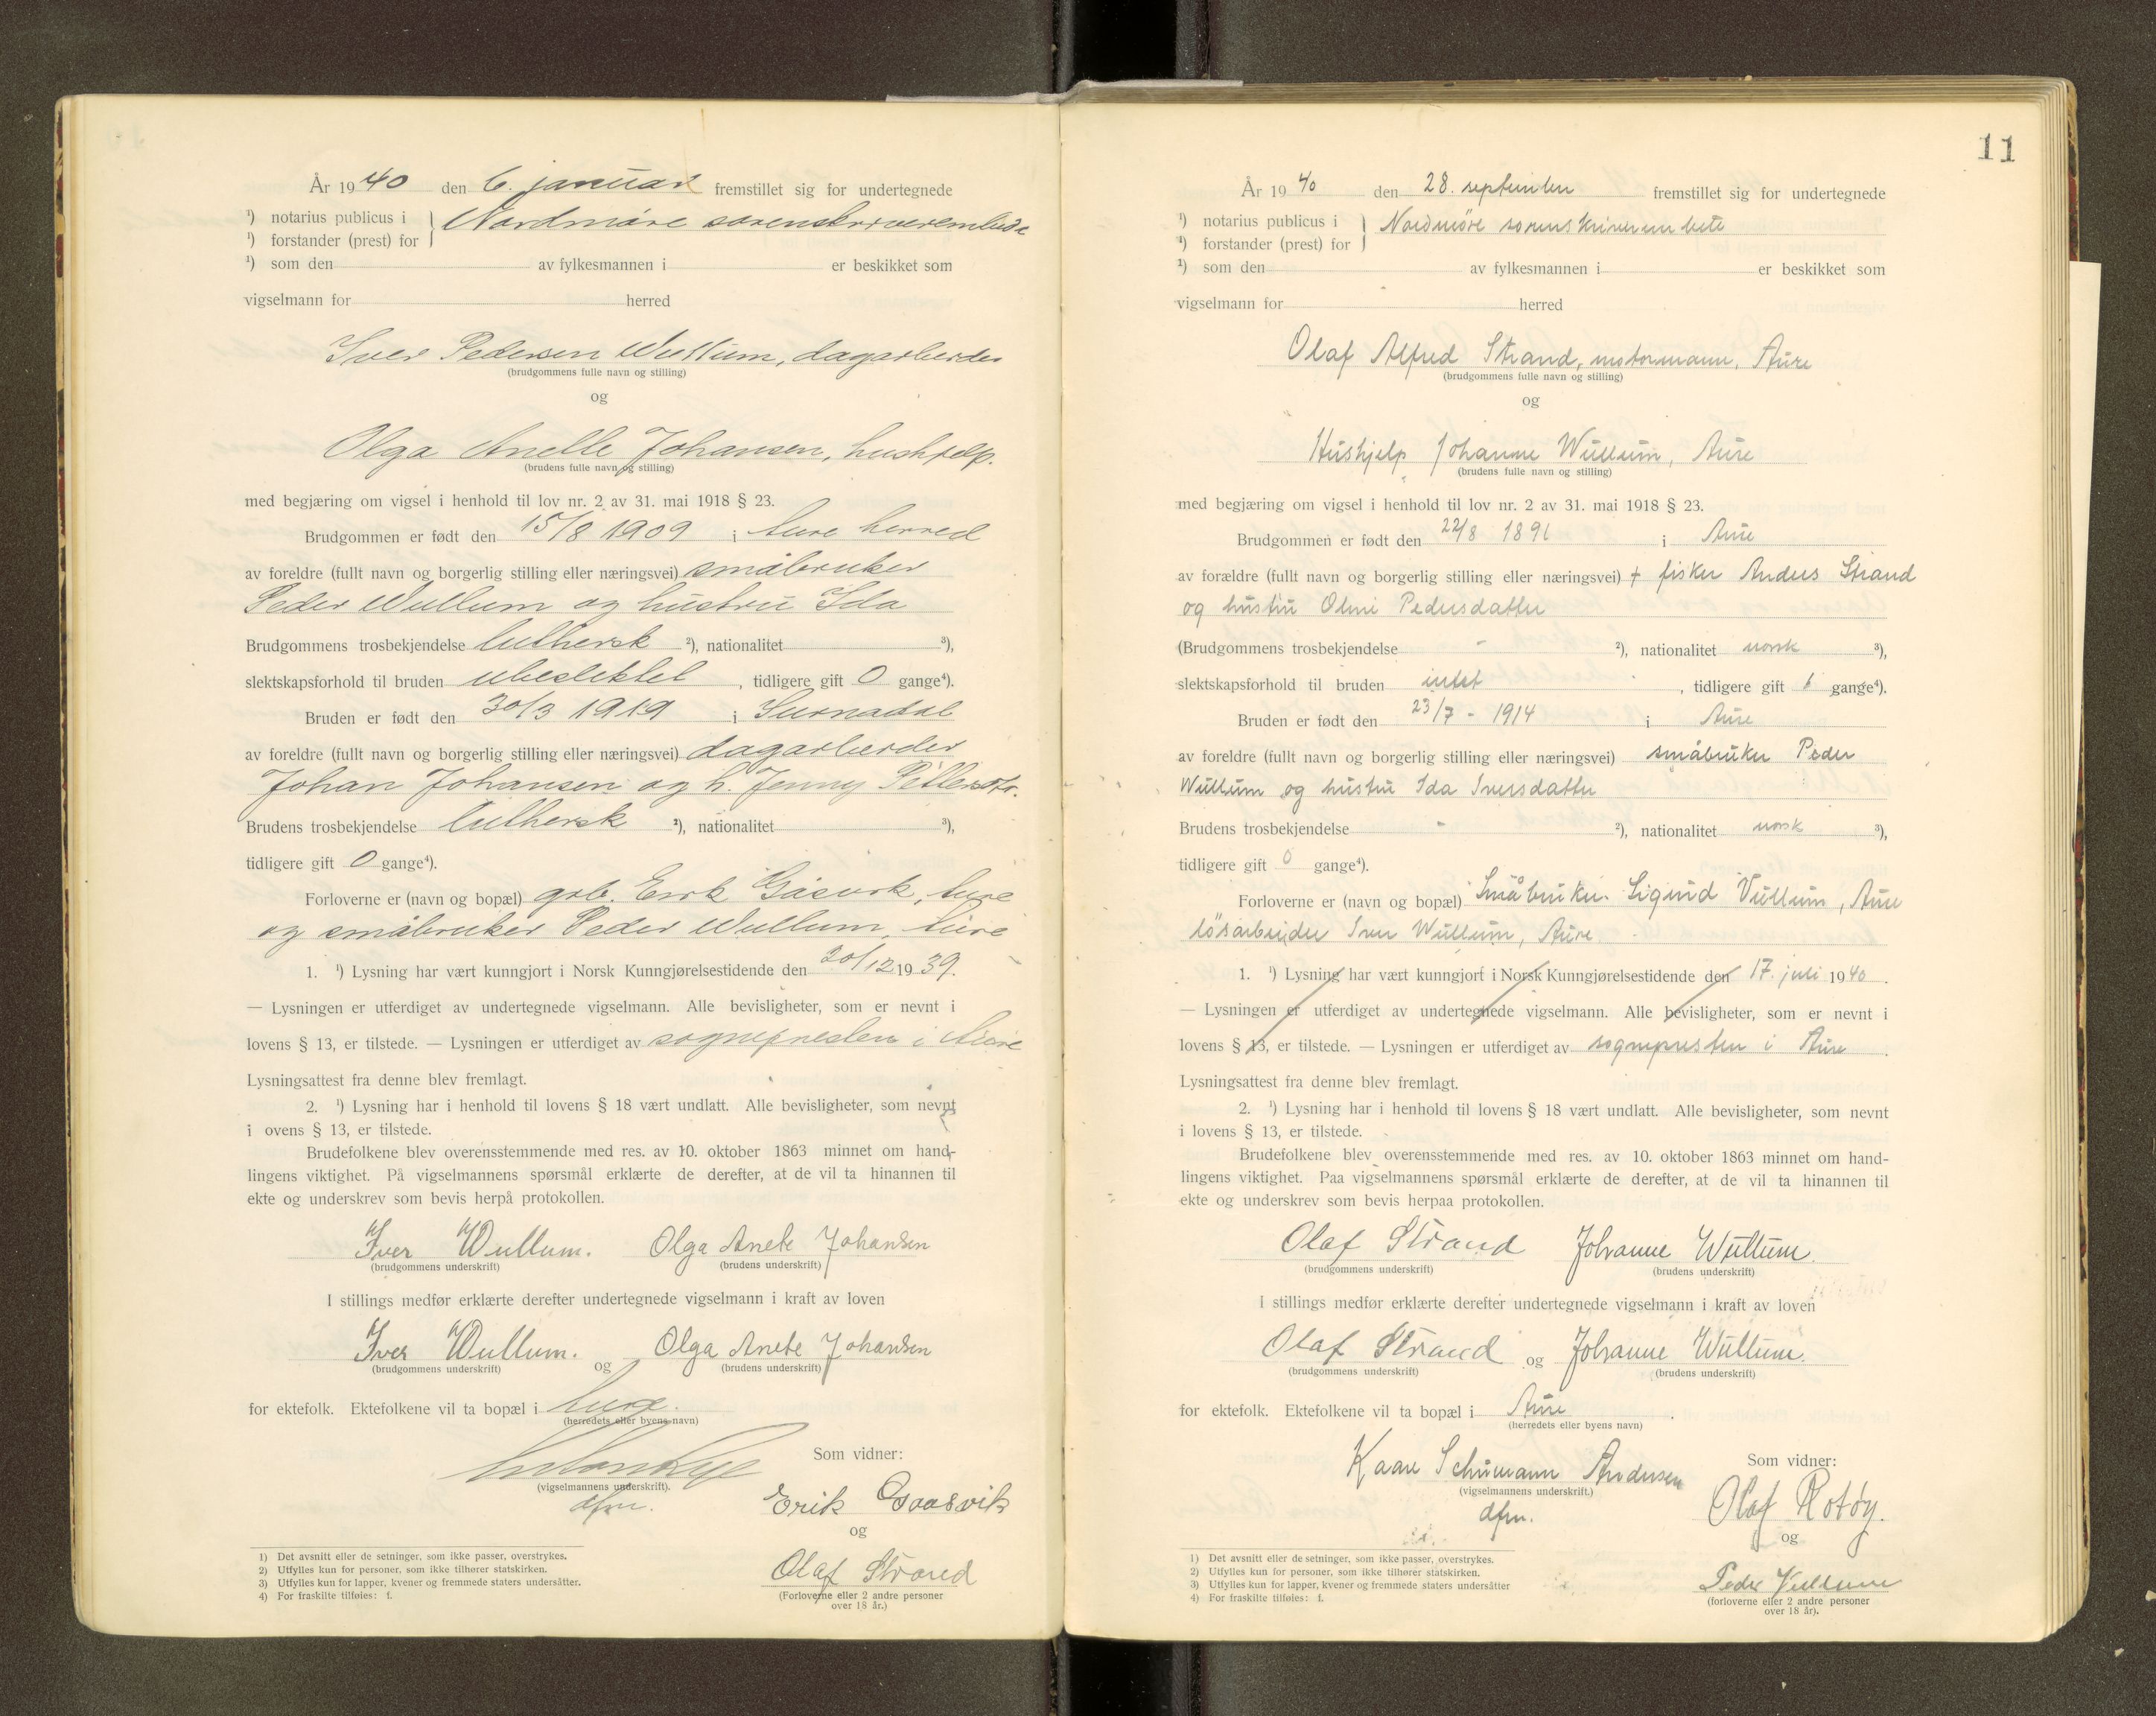 År 1940 den 6. januar fremstillet sig for undertegnede
¹) notarius publicus i
Nordmøre sorenskriverembede
¹) forstander (prest) for
¹) som den av fylkesmannen i er beskikket som
vigselmann for herred
Iver Pedersen Wullum, dagarbeider
(brudgommens fulle navn og stilling)
og
Olga Anette Johansen, hushjelp.
(brudens fulle navn og stilling)
med begjæring om vigsel i henhold til lov nr. 2 av 31. mai 1918 § 23.
Brudgommen er født den 15/8 1909 i Aure herred
av foreldre (fullt navn og borgerlig stilling eller næringsvei) småbruker
Peder Wullum og hustru Ida
Brudgommens trosbekjendelse luthersk ²), nationalitet ³),
slektskapsforhold til bruden ubeslektet, tidligere gift 0 gange⁴).
Bruden er født den 30/3 1919 i Surnadal
av foreldre (fullt navn og borgerlig stilling eller næringsvei) dagarbeider
Johan Johansen og h. Jenny Pettersdtr.
Brudens trosbekjendelse luthersk ²), nationalitet ³),
tidligere gift 0 gange⁴).
Forloverne er (navn og bopæl) grb. Erik Gåsvik, Aure
og småbruker Peder Wullum, Aure
1. ¹) Lysning har vært kunngjort i Norsk Kunngjørelsestidende den 20/12 1939.
— Lysningen er utferdiget av undertegnede vigselmann. Alle bevisligheter, som er nevnt i
lovens § 13, er tilstede. — Lysningen er utferdiget av sognepresten i Aure
Lysningsattest fra denne blev fremlagt.
2. ¹) Lysning har i henhold til lovens § 18 vært undlatt. Alle bevisligheter, som nevnt
i ovens § 13, er tilstede.
Brudefolkene blev overensstemmende med res. av 10. oktober 1863 minnet om hand-
lingens viktighet. På vigselmannens spørsmål erklærte de derefter, at de vil ta hinannen til
ekte og underskrev som bevis herpå protokollen.
Iver Wullum. Olga Anete Johansen
(brudgommens underskrift) (brudens underskrift)
I stillings medfør erklærte derefter undertegnede vigselmann i kraft av loven
Iver Wullum. og Olga Anete Johansen
(brudgommens underskrift) (brudens underskrift)
for ektefolk. Ektefolkene vil ta bopæl i Aure.
(herredets eller byens navn)
Som vidner:
(vigselmannens underskrift).
dfm.
Erik Gaasvik
og
Olaf Strand
(Forloverne eller 2 andre personer
over 18 år.)
1) Det avsnitt eller de setninger, som ikke passer, overstrykes.
2) Utfylles kun for personer, som ikke tilhører statskirken.
3) Utfylles kun for lapper, kvener og fremmede staters undersåtter.
4) For fraskilte tilføies: f.
11
År 1940 den 28. september fremstillet sig for undertegnede
¹) notarius publicus i
Nordmøre sorenskriverembete
¹) forstander (prest) for
¹) som den av fylkesmannen i er beskikket som
vigselmann for herred
Olaf Alfred Strand, motormann, Aure
(brudgommens fulle navn og stilling)
og
Hushjelp Johanne Wullum, Aure
(brudens fulle navn og stilling)
med begjæring om vigsel i henhold til lov nr. 2 av 31. mai 1918 § 23.
Brudgommen er født den 22/8 1891 i Aure
av forældre (fullt navn og borgerlig stilling eller næringsvei) + fisker Anders Strand
og hustru Oline Pedersdatter
(Brudgommens trosbekjendelse - ²), nationalitet norsk ³),
slektskapsforhold til bruden intet, tidligere gift gange⁴).
Bruden er født den 23/7 - 1914 i Aure
av foreldre (fullt navn og borgerlig stilling eller næringsvei) småbruker Peder
Wullum og hustru Ida Iversdatter
Brudens trosbekjendelse - ²), nationalitet norsk ³),
tidligere gift 0 gange⁴).
Forloverne er (navn og bopæl) Småbruker Sigurd Vullum, Aure
løsarbeider Iver Wullum, Aure
1. ¹) Lysning har vært kunngjort i Norsk Kunngjørelsestidende den 17. juli 1940.
— Lysningen er utferdiget av undertegnede vigselmann. Alle bevisligheter, som er nevnt i
lovens § 13, er tilstede. — Lysningen er utferdiget av sognepresten i Aure.
Lysningsattest fra denne blev fremlagt.
2. ¹) Lysning har i henhold til lovens § 18 vært undlatt. Alle bevisligheter, som nevnt
i lovens § 13, er tilstede.
Brudefolkene blev overensstemmende med res. av 10. oktober 1863 minnet om hand-
lingens viktighet. Paa vigselmannens spørsmål erklærte de derefter, at de vil ta hinannen til
ekte og underskrev som bevis herpaa protokollen.
Olaf Strand Johanne Wullum.
(brudgommens underskrift) (brudens underskrift)
I stillings medfør erklærte derefter undertegnede vigselmann i kraft av loven
Olaf Strand og Johanne Wullum.
(brudgommens underskrift) (brudens underskrift)
for ektefolk. Ektefolkene vil ta bopæl i Aure.
(herredets eller byens navn)
Kaare Schumann Andersen
(vigselmannens underskrift.)
dfm.
Som vidner:
Olaf Rotøy.
og
Peder Vullum
(forloverne eller 2 andre personer
over 18 år).
1) Det avsnitt eller de setninger, som ikke passer, overstrykes.
2) Utfylles kun for personer, som ikke tilhører statskirken.
3) Utfylles kun for lapper, kvener og fremmede staters undersåtter
4) For fraskilte tilføies: f.